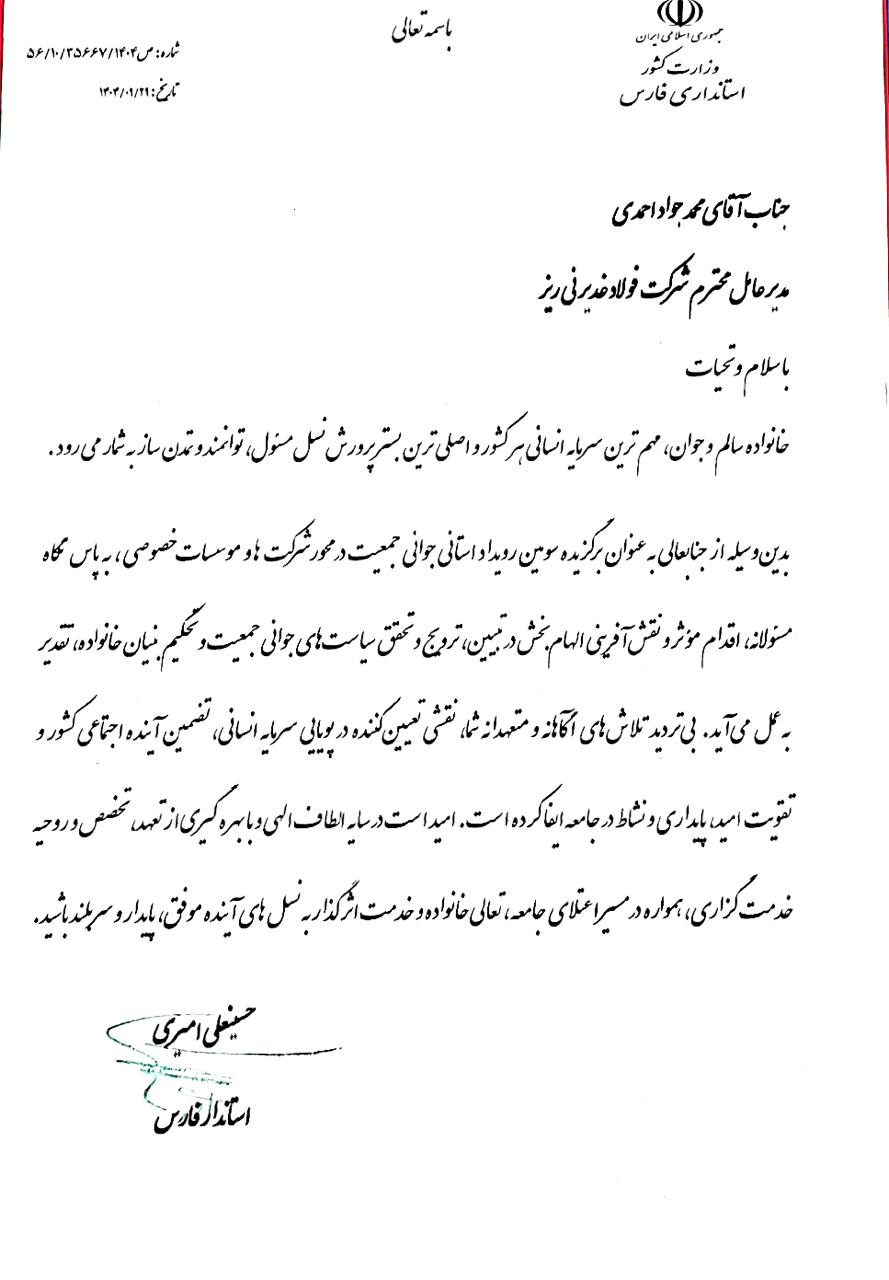 باسمه تعالی
جمهوری اسلامی ایران
وزارت کشور
استانداری فارس
شماره: ص۵۶/۱۰/۳۵۶۶۷/۱۴۰۴
تاریخ: ۱۴۰۴/۰۹/۲۹
جناب آقای محمد جواد احمدی
مدیرعامل محترم شرکت فولاد غدیر نی ریز
با سلام و تحیات
خانواده سالم و جوان، مهم ترین سرمایه انسانی هر کشور و اصلی ترین بستر پرورش نسل مسئول، توانمند و تمدن ساز به شمار می رود.
بدین وسیله از جنابعالی به عنوان برگزیده سومین رویداد استانی جوانی جمعیت در محور شرکت ها و موسسات خصوصی، به پاس نگاه
مسئولانه، اقدام مؤثر و نقش آفرینی الهام بخش در تبیین، ترویج و تحقق سیاست های جوانی جمعیت و تحکیم بنیان خانواده، تقدیر
به عمل می آید. بی تردید تلاش های آگاهانه و متعهدانه شما، نقشی تعیین کننده در پویایی سرمایه انسانی، تضمین آینده اجتماعی کشور و
تقویت امید، پایداری و نشاط در جامعه ایفا کرده است. امید است در سایه الطاف الهی و با بهره گیری از تعهد، تخصص و روحیه
خدمت گزاری، همواره در مسیر اعتلای جامعه، تعالی خانواده و خدمت اثرگذار به نسل های آینده موفق، پایدار و سربلند باشید.
حسینعلی امیری
استاندار فارس